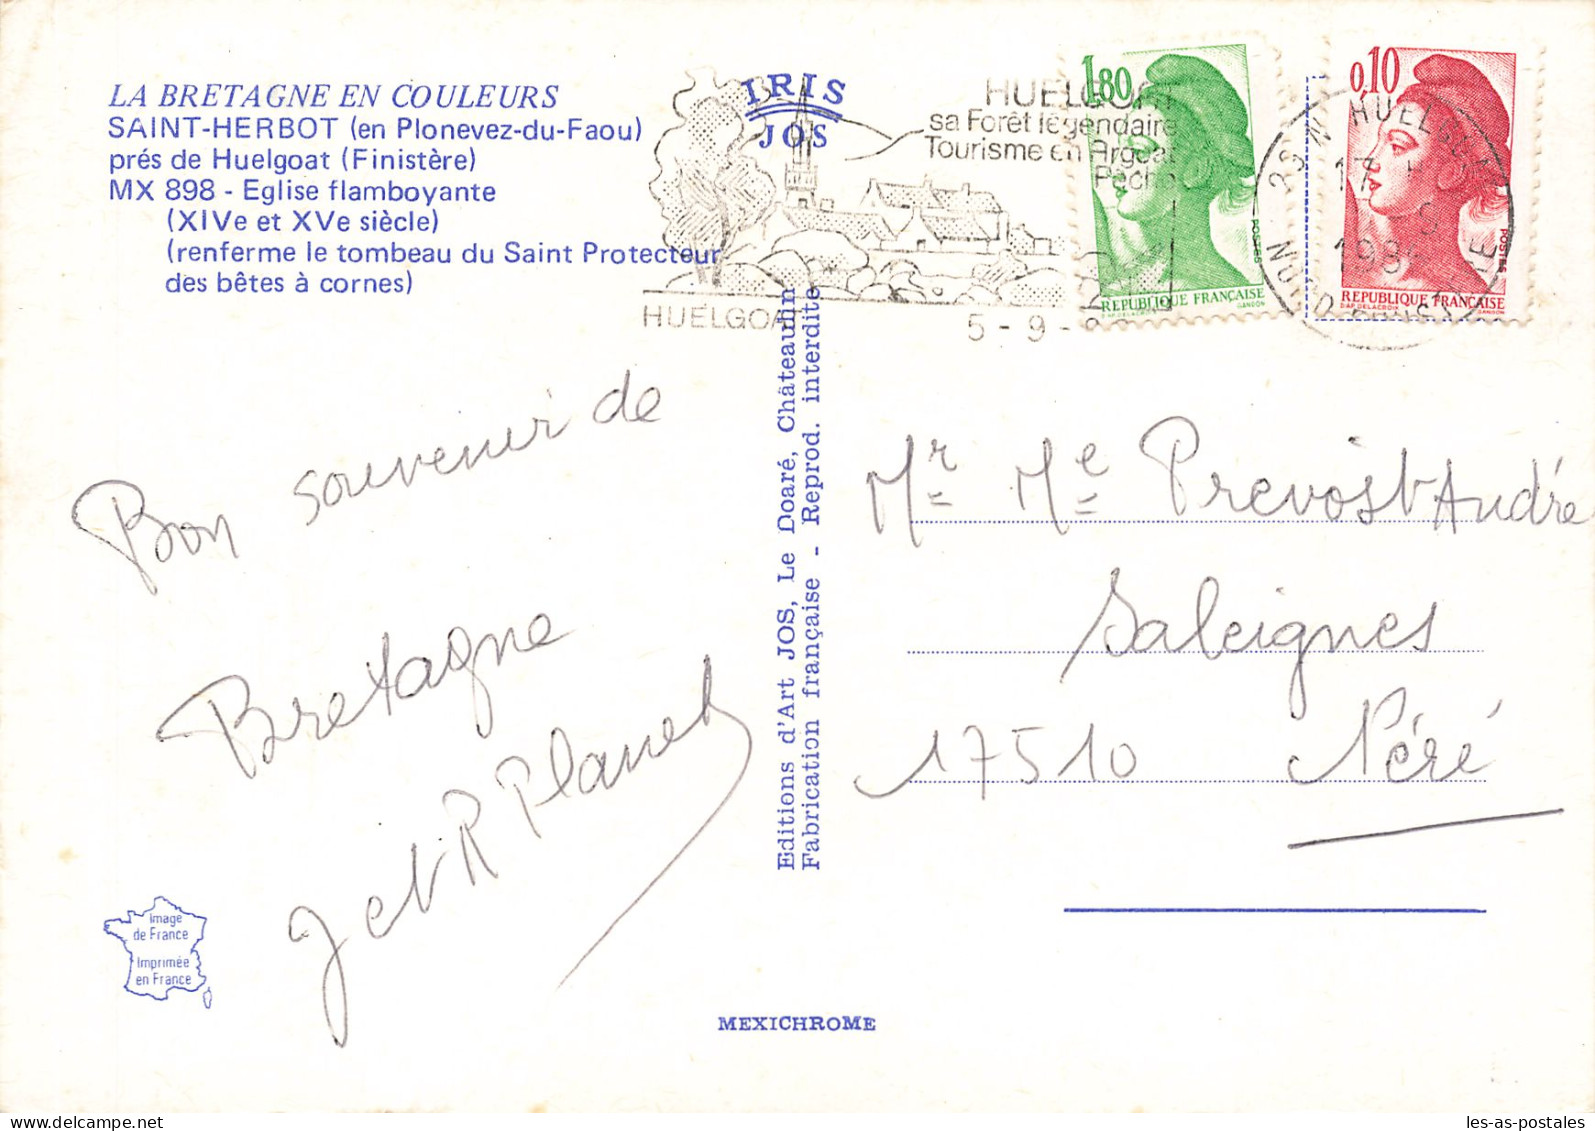 LA BRETAGNE EN COULEURS
SAINT-HERBOT (en Plonevez-du-Faou)
prés de Huelgoat (Finistère)
MX 898 - Eglise flamboyante
(XIVe et XVe siècle)
(renferme le tombeau du Saint Protecteur
des bêtes à cornes)
IRIS
JOS
HUELGOAT
sa Forêt légendaire
Tourisme en Argoat
Pêche
HUELGOAT
5 - 9 -
1,80
REPUBLIQUE FRANÇAISE
POSTES
D'AP. DELACROIX
GANDON
0,10
REPUBLIQUE FRANÇAISE
POSTES
D'AP. DELACROIX
GANDON
HUELGOAT
17
198
Bon souvenir de
Bretagne
J et R Planet
Editions d'Art JOS, Le Doaré, Châteaulin
Fabrication française - Reprod. interdite
Mr Me Prevost André
Saleignes
17510 Néré
Image
de France
Imprimée
en France
MEXICHROME
les-as-postales
delcampe.net